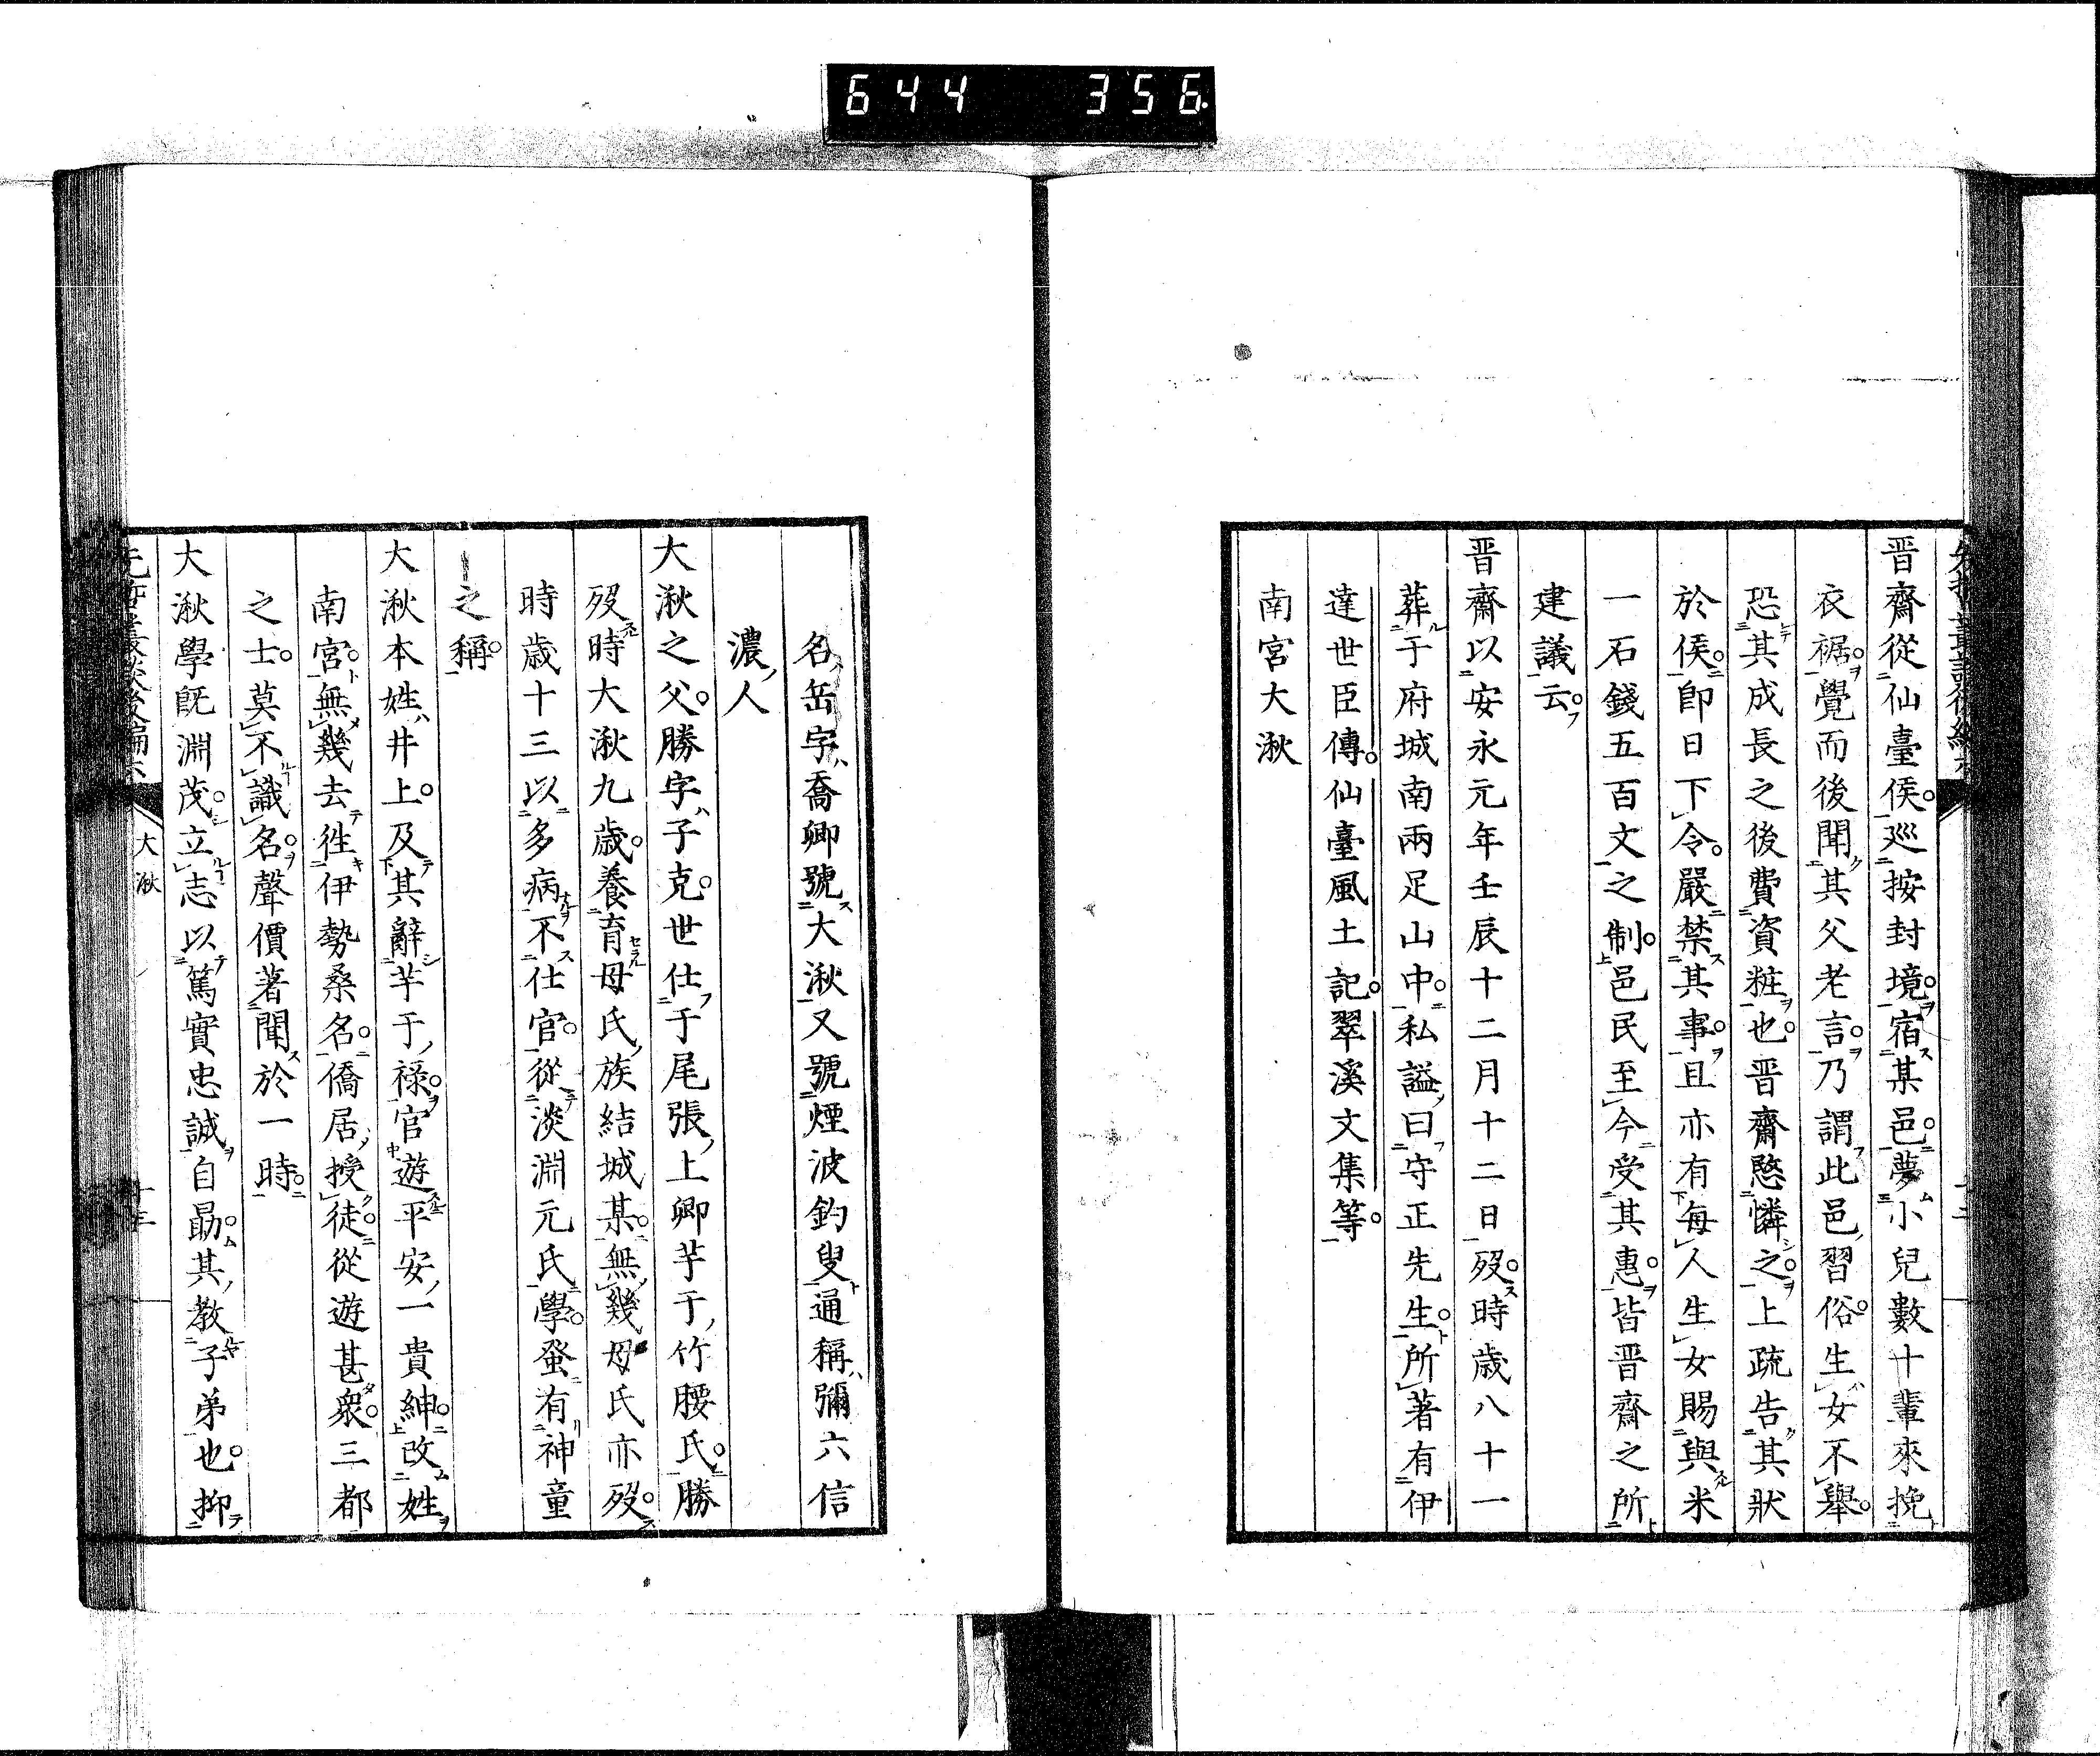 644 356
晋齋從仙臺侯巡按封境宿某邑夢小兒數十輩來挽
衣裾覺而後聞其父老言乃謂此邑習俗生女不擧
恐其成長之後費資粧也晋齋愍憐之上疏告其狀
於侯卽日下令嚴禁其事且亦有每人生女賜與米
一石錢五百文之制邑民至今受其惠皆晋齋之所
建議云
晋齋以安永元年壬辰十二月十二日歿時歳八十一
葬于府城南兩足山中私謚曰守正先生所著有伊
達世臣傳仙臺風土記翠溪文集等
南宮大湫
名岳字喬卿號大湫又號煙波釣叟通稱彌六信
濃人
大湫之父勝字子克世仕于尾張上卿芋于竹腰氏勝
歿時大湫九歳養育母氏族結城某無幾母氏亦歿
時歳十三以多病不仕官從淡淵元氏學蚤有神童
之稱
大湫本姓井上及其辭芋于祿官遊平安一貴紳改姓
南宮無幾去徃伊勢桑名僑居授徒從遊甚衆三都
之士莫不識名聲價著聞於一時
大湫學旣淵茂立志以篤實忠誠自勗其教子弟也抑
大湫